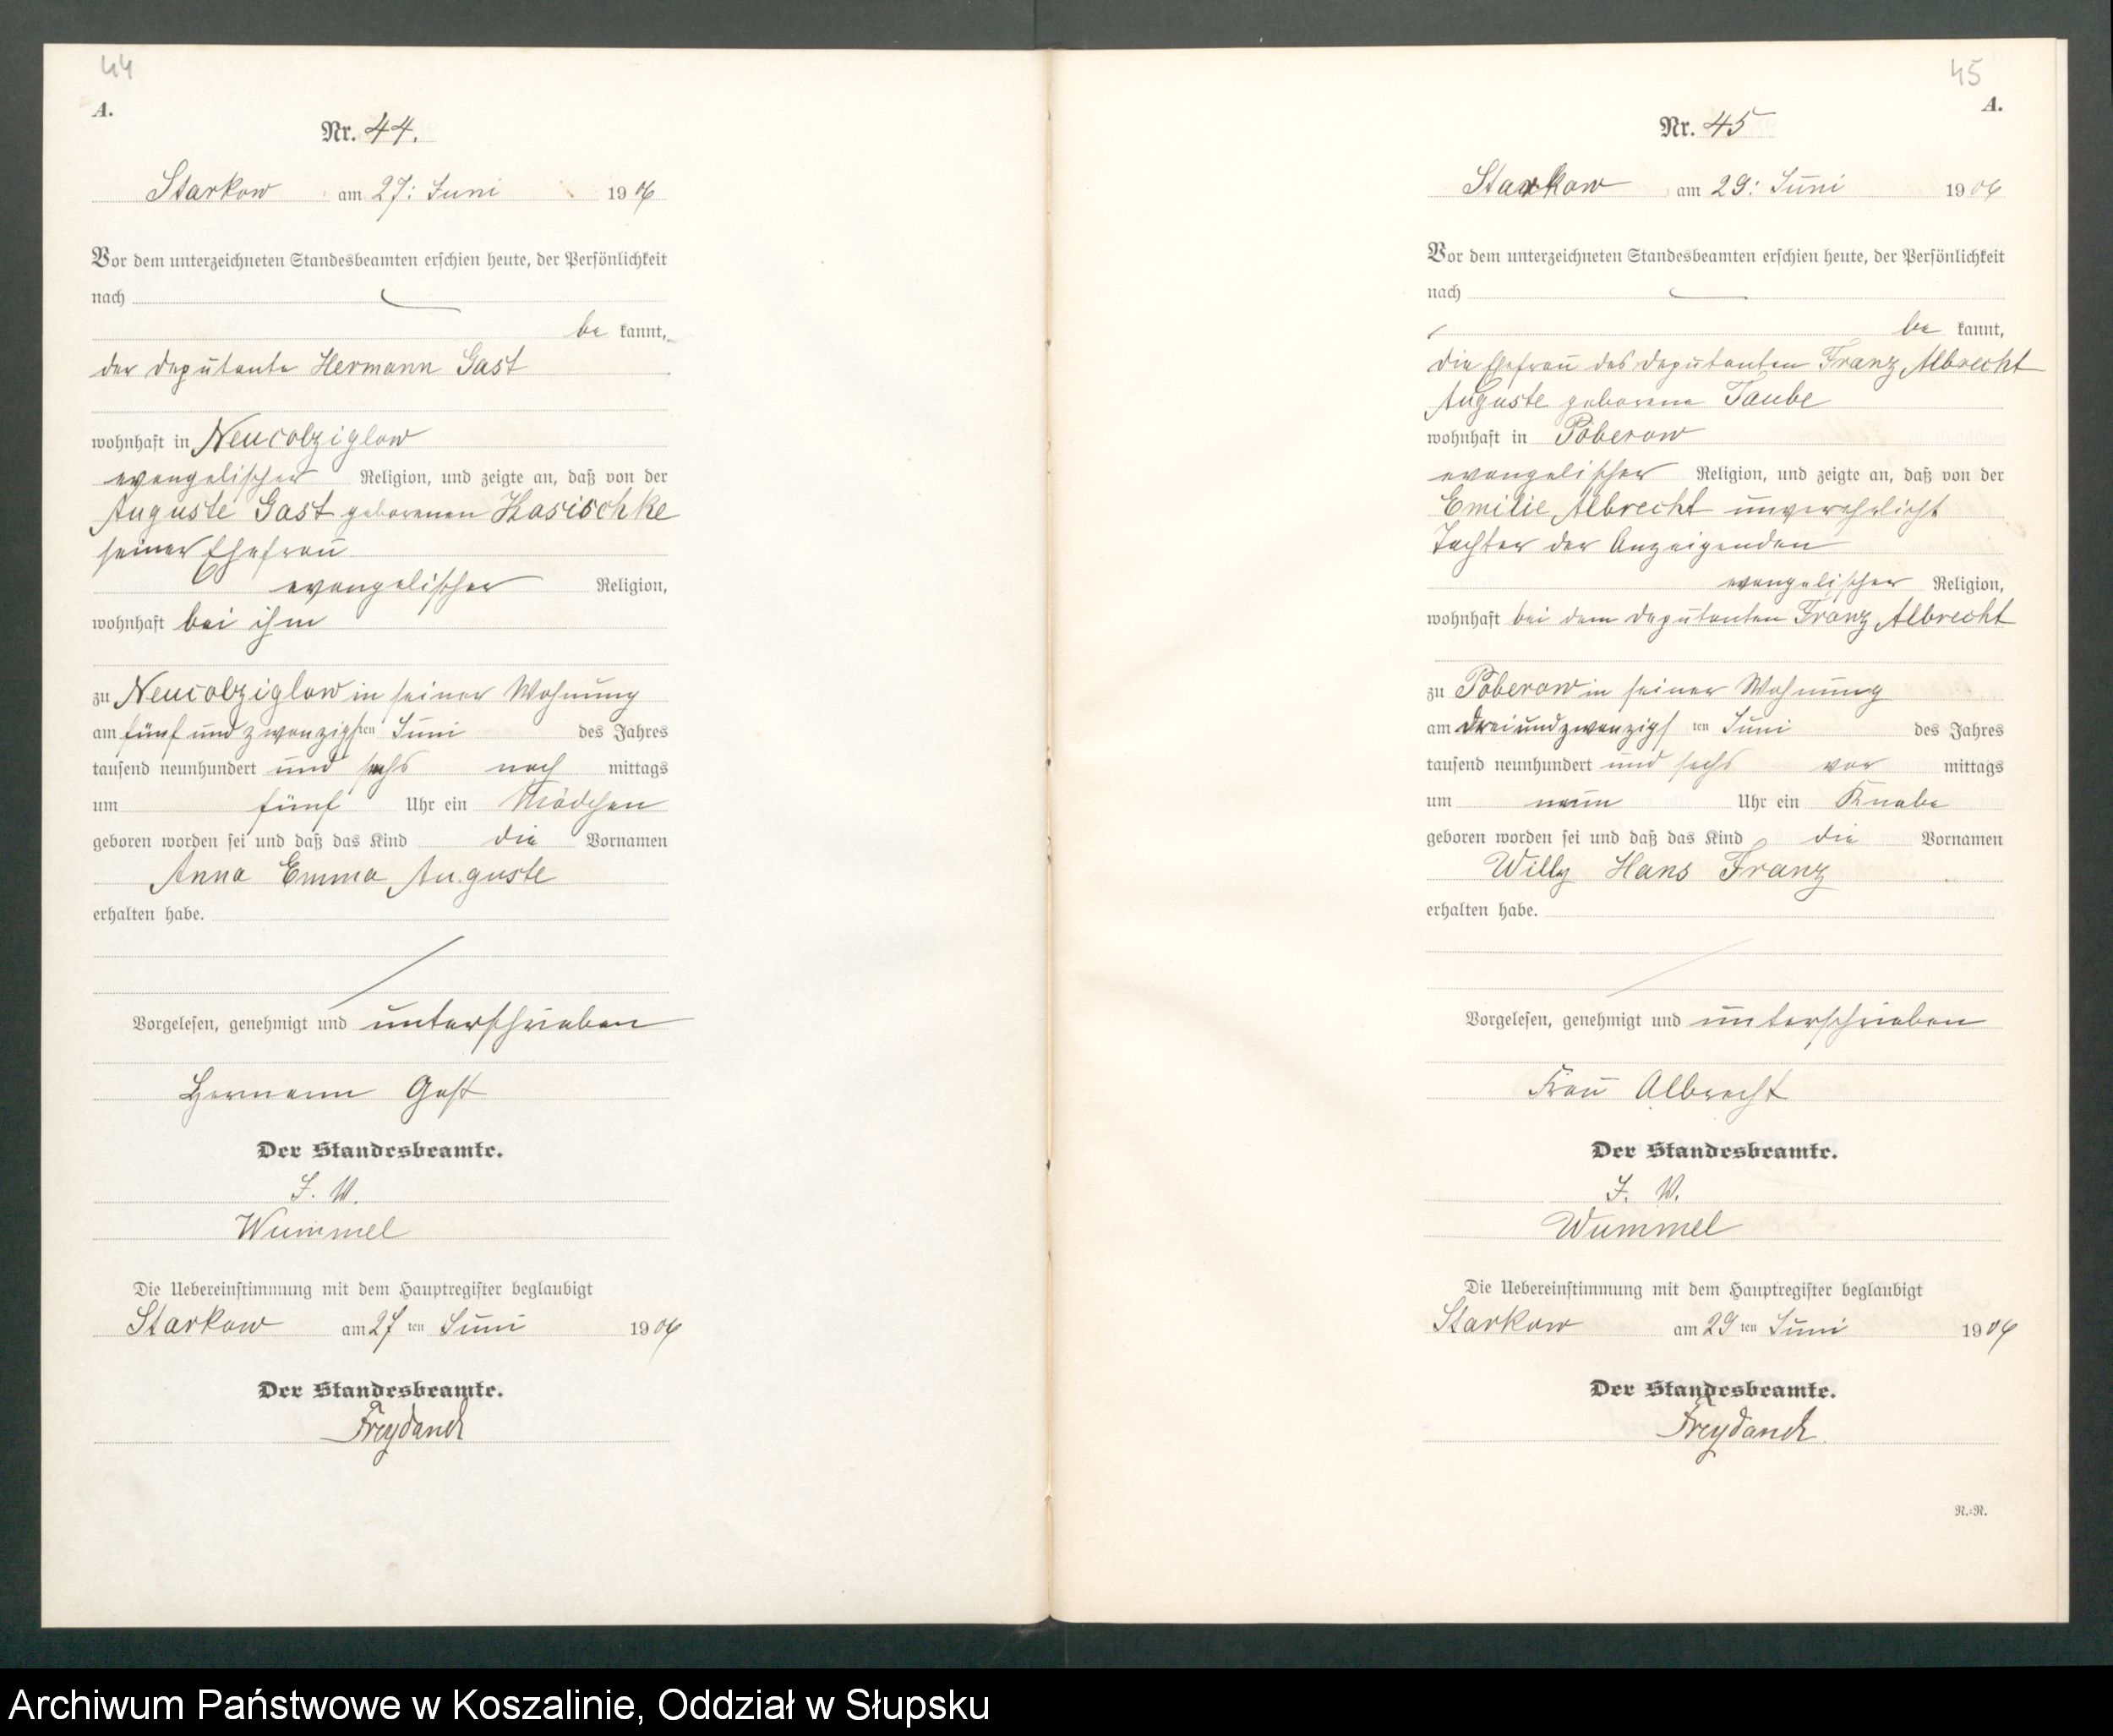 44
A.
Nr. 44.
Starkow am 27: Juni 1906
Vor dem unterzeichneten Standesbeamten erschien heute, der Persönlichkeit
nach
be kannt,
der Deputante Hermann Gast
wohnhaft in Neucolziglow
evangelischer Religion, und zeigte an, daß von der
Auguste Gast geborenen Kasischke
seiner Ehefrau
evangelischer Religion,
wohnhaft bei ihm
zu Neucolziglow in seiner Wohnung
am fünf und zwanzigsten Juni des Jahres
tausend neunhundert und sechs nach mittags
um fünf Uhr ein Mädchen
geboren worden sei und daß das Kind die Vornamen
Anna Emma Auguste
erhalten habe.
Vorgelesen, genehmigt und unterschrieben
Hermann Gast
Der Standesbeamte.
J. V.
Wummel
Die Uebereinstimmung mit dem Hauptregister beglaubigt
Starkow am 27 ten Juni 1906
Der Standesbeamte.
Freydanck
45
A.
Nr. 45
Starkow am 29: Juni 1906
Vor dem unterzeichneten Standesbeamten erschien heute, der Persönlichkeit
nach
be kannt,
die Ehefrau des Deputanten Franz Albrecht
Auguste geborene Taube
wohnhaft in Poberow
evangelischer Religion, und zeigte an, daß von der
Emilie Albrecht unverehelicht
Tochter der Anzeigenden
evangelischer Religion,
wohnhaft bei dem Deputanten Franz Albrecht
zu Poberow in seiner Wohnung
am dreiundzwanzigs ten Juni des Jahres
tausend neunhundert und sechs vor mittags
um neun Uhr ein Knabe
geboren worden sei und daß das Kind die Vornamen
Willy Hans Franz
erhalten habe.
Vorgelesen, genehmigt und unterschrieben
Frau Albrecht
Der Standesbeamte.
J. V.
Wummel
Die Uebereinstimmung mit dem Hauptregister beglaubigt
Starkow am 29 ten Juni 1906
Der Standesbeamte.
Freydanck
N.=N.
Archiwum Państwowe w Koszalinie, Oddział w Słupsku